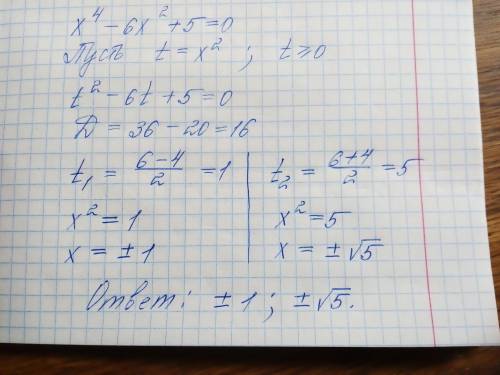 x⁴ - 6x² + 5 = 0
Пусть t = x² ; t ≥ 0
t² - 6t + 5 = 0
D = 36 - 20 = 16
t₁ = (6-4)/2 = 1 | t₂ = (6+4)/2 = 5
x² = 1 | x² = 5
x = ±1 | x = ±√5
Ответ: ±1 ; ±√5.